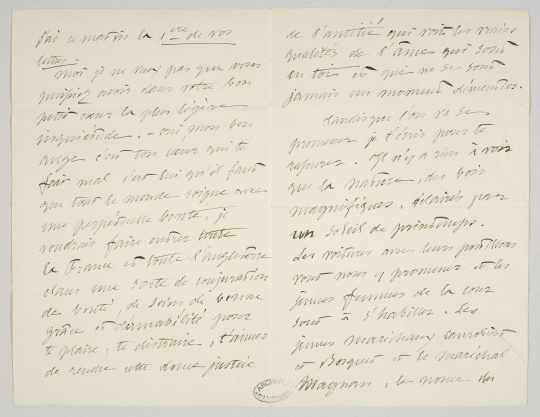 J'ai ce matin la 1ère de vos
lettres.
moi je ne veux pas que vous
puissiez avoir dans votre bon
petit cœur la plus légère
inquiétude. - oui mon bon
ange c'est ton cœur qui te
fait mal c'est lui qu'il faut
que tout le monde soigne avec
une perpétuelle bonté, je
voudrais faire entrer toute
la France et toute l'angleterre
dans une sorte de conjuration
de bonté, de soins de bonne
grâce et d'amabilité pour
te plaire, te distraire, t'aimer
de rendre cette douce justice
de l'amitié qui voit les vraies
qualités de l'âme qui sont
en toi et qui ne se sont
jamais un moment démenties.
Tandis que l'on va se
promener je t'écris pour te
rassurer. Il n'y a rien à voir
que la nature, des bois
magnifiques, éclairés par
un soleil de printemps.
Les voitures avec leurs postillons
vont nous y promener et les
jeunes femmes de la cour
sont à s'habiller. Les
jeunes maréchaux Canrobert
et Bosquet et le maréchal
Magnan, le nonce du
ARCHIVES